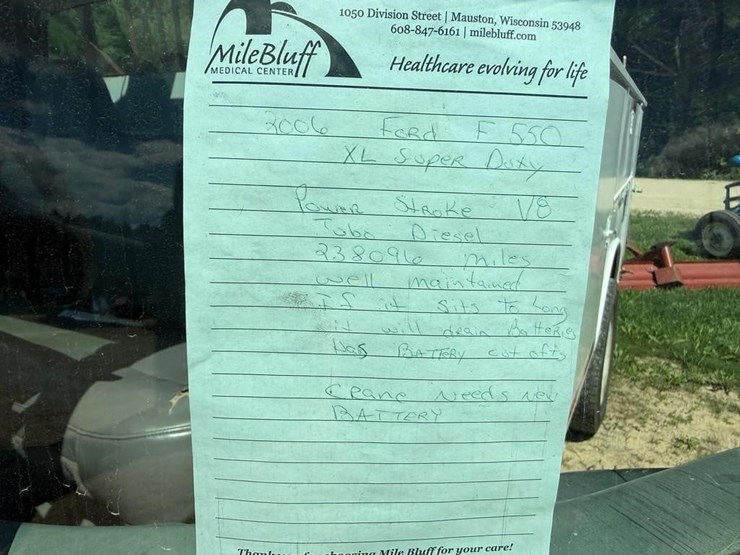 1050 Division Street | Mauston, Wisconsin 53948
608-847-6161 | milebluff.com
MileBluff
MEDICAL CENTER
Healthcare evolving for life
2006 FORD F 550
XL SUPER Duty
Power Stroke V8
Tubo Diesel
238096 miles
well maintained
If it Sits To Long
it will drain Batteries
has BATTERY cut offs
CRANE Needs New
BATTERY
choosing Mile Bluff for your care!